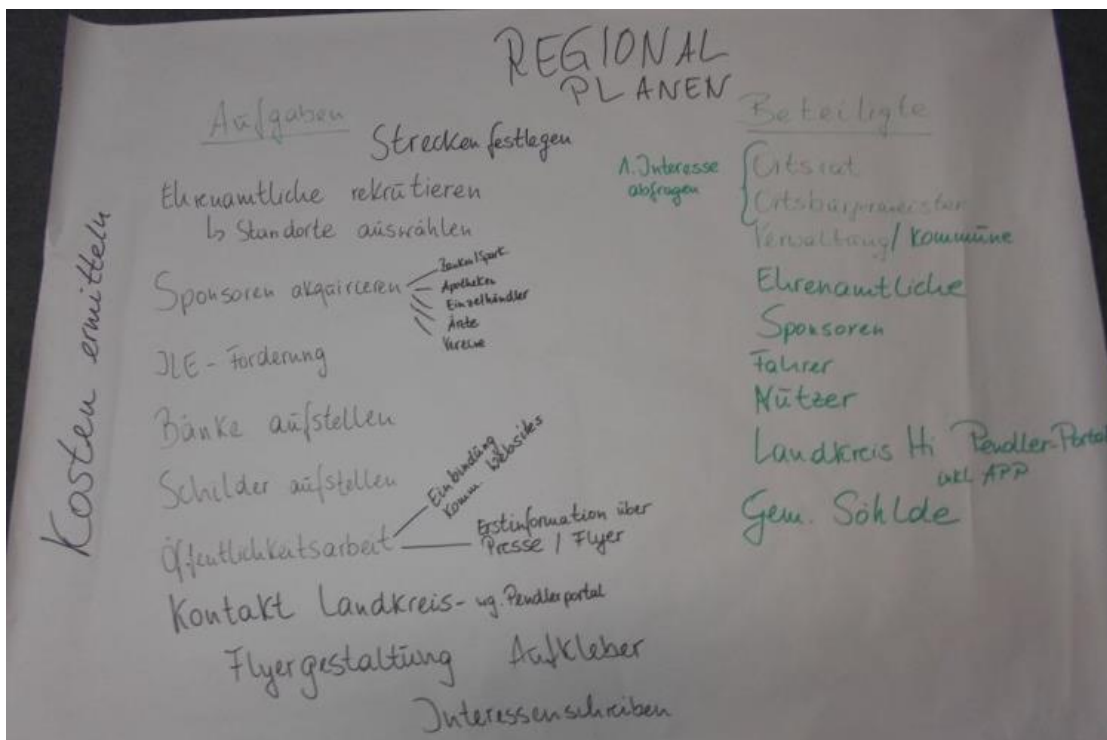 REGIONAL
PLANEN
Aufgaben
Strecken festlegen
Ehrenamtliche rekrutieren
↳ Standorte auswählen
Sponsoren akquirieren
Banken/Spark.
Apotheken
Einzelhändler
Ärzte
Vereine
ILE - Förderung
Bänke aufstellen
Schilder aufstellen
Öffentlichkeitsarbeit
Einbindung
Komm. Websites
Erstinformation über
Presse / Flyer
Kontakt Landkreis - wg. Pendlerportal
Flyergestaltung Aufkleber
Interessenschreiben
Kosten ermitteln
Beteiligte
1. Interesse
abfragen
Ortsrat
Ortsbürgermeister
Verwaltung / Kommune
Ehrenamtliche
Sponsoren
Fahrer
Nutzer
Landkreis Hi Pendler-Portal
inkl. APP
Gem. Söhlde